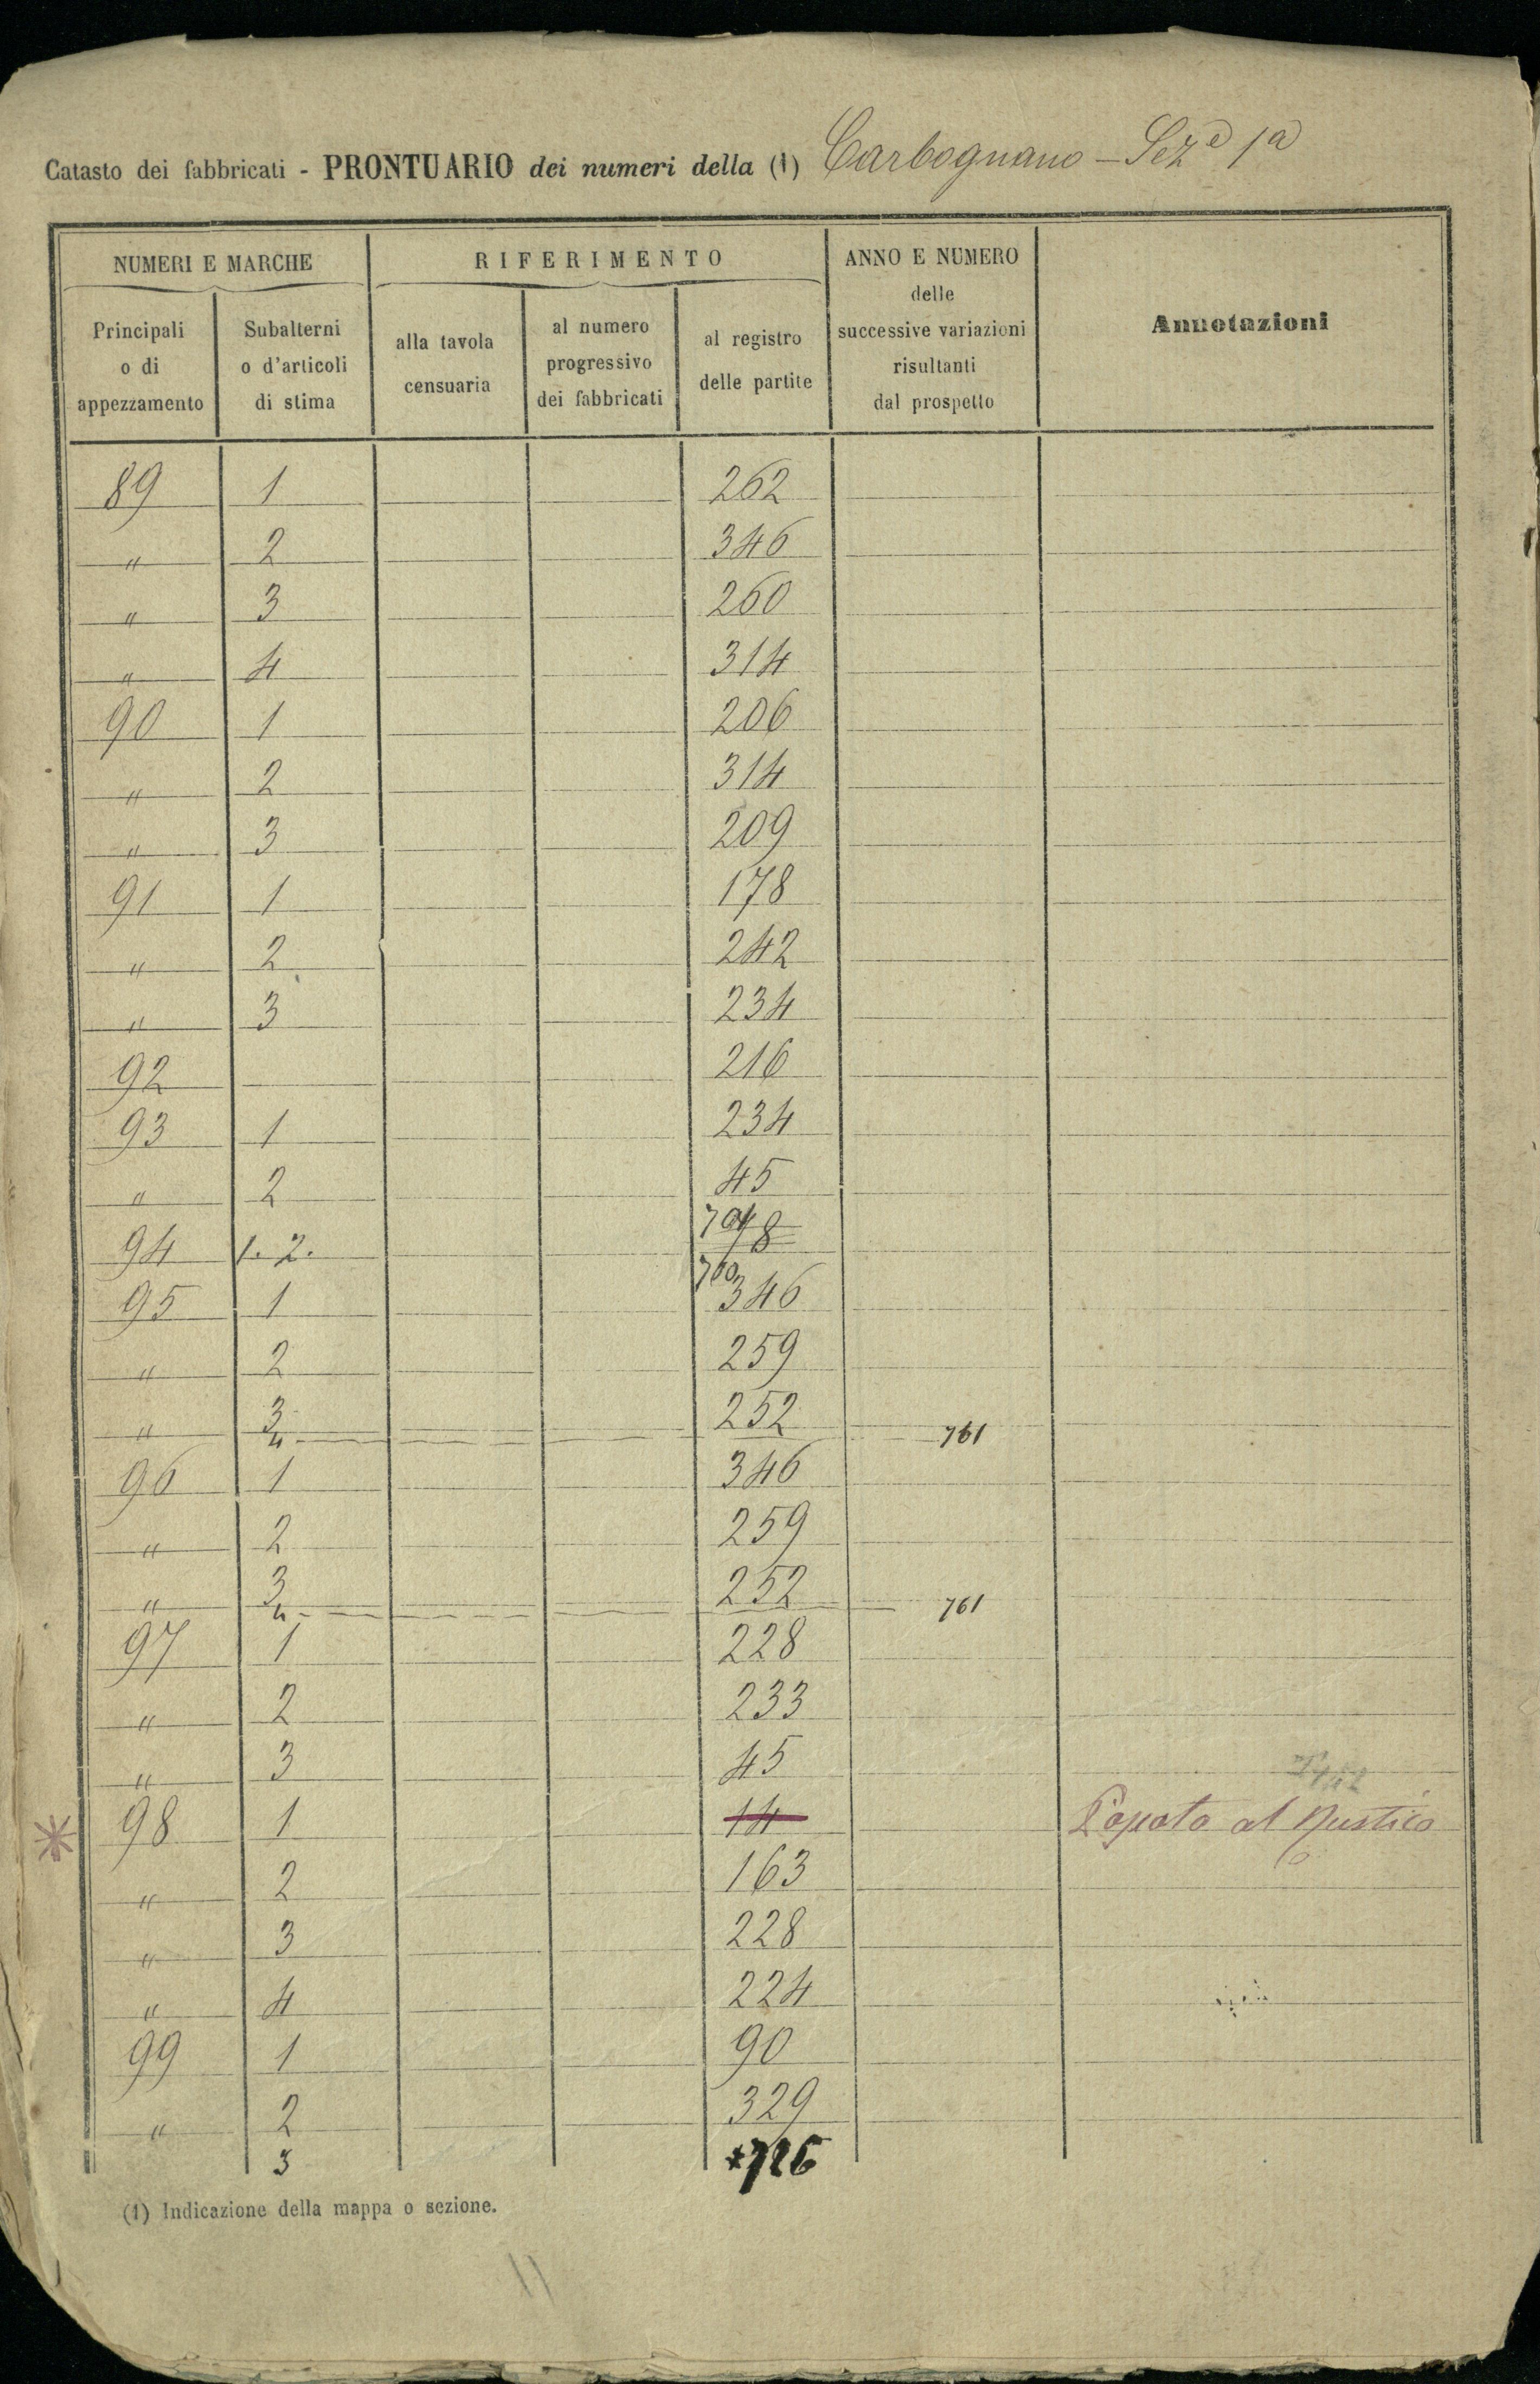 Catasto dei fabbricati - PRONTUARIO dei numeri della (1) Carbognano - Sez.e 1a
NUMERI E MARCHE RIFERIMENTO ANNO E NUMERO delle successive variazioni risultanti dal prospetto Annotazioni
Principali o di appezzamento Subalterni o d'articoli di stima alla tavola censuaria al numero progressivo dei fabbricati al registro delle partite
89 1 262
" 2 346
" 3 260
" 4 314
90 1 206
" 2 314
" 3 209
91 1 178
" 2 242
" 3 234
92 216
93 1 234
" 2 45
94 1. 2.
95 1 346
" 2 259
" 3 252
4 761
96 1 346
" 2 259
" 3 252
4 761
97 1 228
" 2 233
" 3 45
98 1 14 al Rustico
" 2 163
" 3 228
" 4 224
99 1 90
" 2 329
3 *726
(1) Indicazione della mappa o sezione.
11